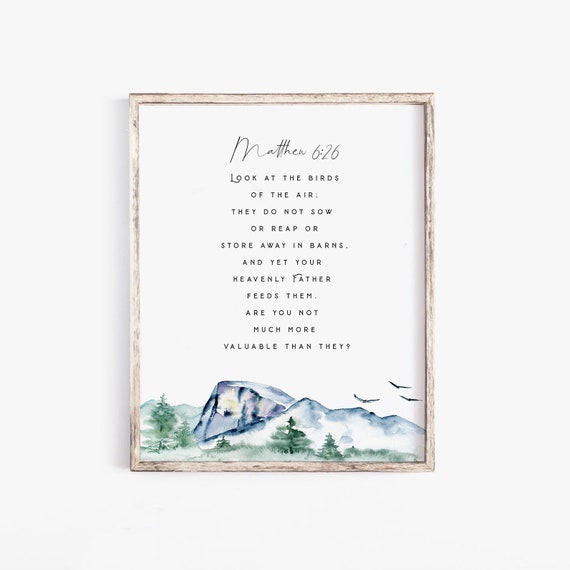 Matthew 6:26
LOOK AT THE BIRDS
OF THE AIR;
THEY DO NOT SOW
OR REAP OR
STORE AWAY IN BARNS,
AND YET YOUR
HEAVENLY FATHER
FEEDS THEM.
ARE YOU NOT
MUCH MORE
VALUABLE THAN THEY?